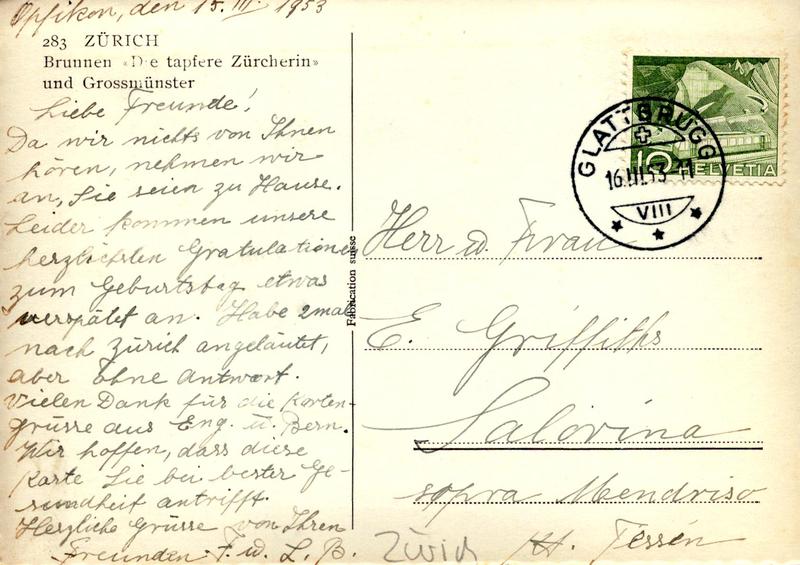 Opfikon, den 15. III. 1953
283 ZÜRICH
Brunnen «Die tapfere Zürcherin»
und Grossmünster
Liebe Freunde!
Da wir nichts von Ihnen
hören, nehmen wir
an, Sie seien zu Hause.
Leider kommen unsere
herzlichsten Gratulationen
zum Geburtstag etwas
verspätet an. Habe 2mal
nach Zürich angeläutet,
aber ohne Antwort.
Vielen Dank für die Karten-
grüsse aus Eng. u. Bern.
Wir hoffen, dass diese
Karte Sie bei bester Ge-
sundheit antrifft.
Herzliche Grüsse von Ihren
Freunden F. u. L. B.
Fabrication suisse
GLATTBRUGG
16.III.53-11
VIII
10 HELVETIA
Herr u. Frau
E. Griffiths
Salorina
sopra Mendriso
Kt. Tessin
Zürich